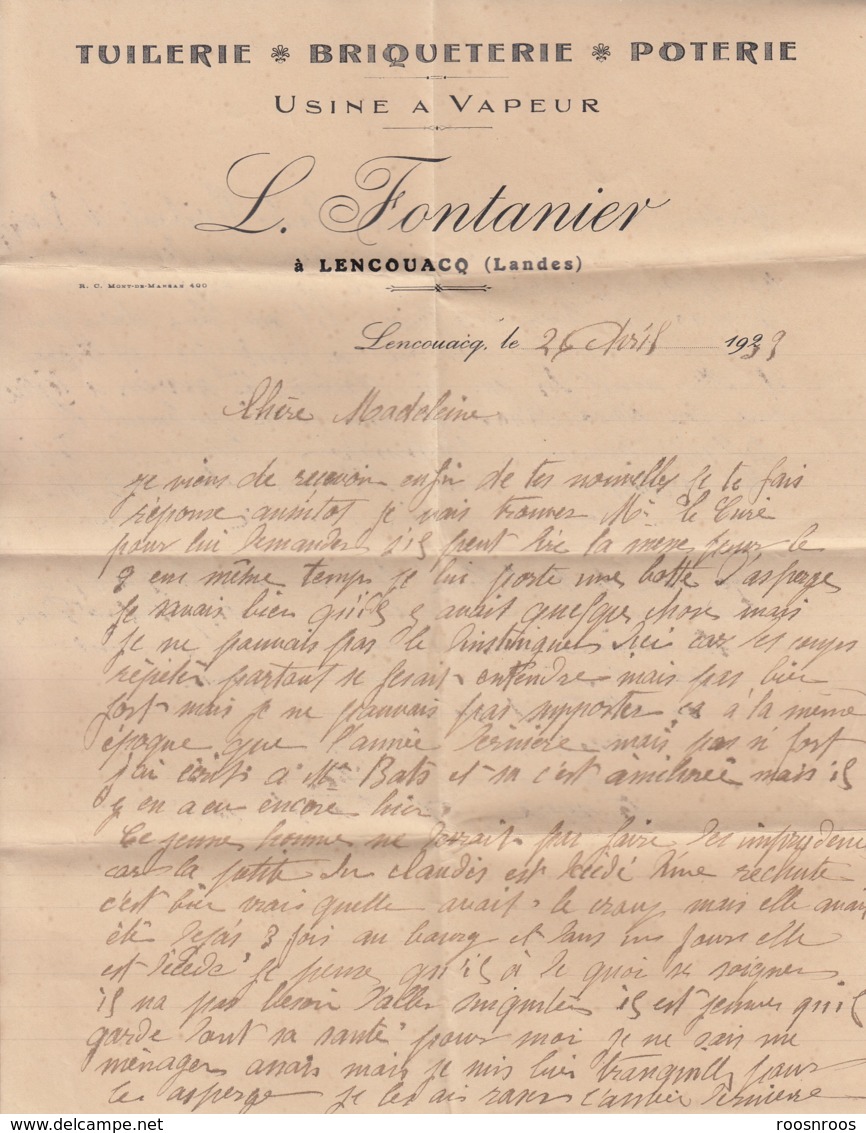 TUILERIE * BRIQUETERIE * POTERIE
USINE A VAPEUR
L. Fontanier
à LENCOUACQ (Landes)
R. C. MONT-DE-MARSAN 400
Lencouacq, le 26 Avril 1933
Chère Madeleine
je viens de recevoir enfin de tes nouvelles je te fais
réponse aussitot je vais trouver Mr le Curé
pour lui demander s'il peut dire la messe pour le
9 em même temps je lui porte une botte d'asperge
Je savais bien qu'il y avait quelque chose mais
je ne pouvais pas le distinguer d'ici car les coups
répétés partout se fesait entendre mais pas bien
fort mais je ne pouvais pas supporter ça à la même
époque que l'année dernière mais pas si fort
j'ai écrit à Mr Bats et sa c'est améliorée mais il
y en a eu encore hier
Ce jeune homme ne devrait pas faire des imprudence
car la petite du claudis est décédé d'une rechute
c'est bien vrais quelle avait le croup mais elle avait
été dejas 3 fois au bourg et dans un jours elle
est décédé je pense qu'il à de quoi se soigner
il na pas besoin d'aller il est jeune qu'il
garde tant sa santé pour moi je ne sais me
ménager assais mais je suis bien tranquille pour
les asperge je les ai l'année dernière
roosnroos